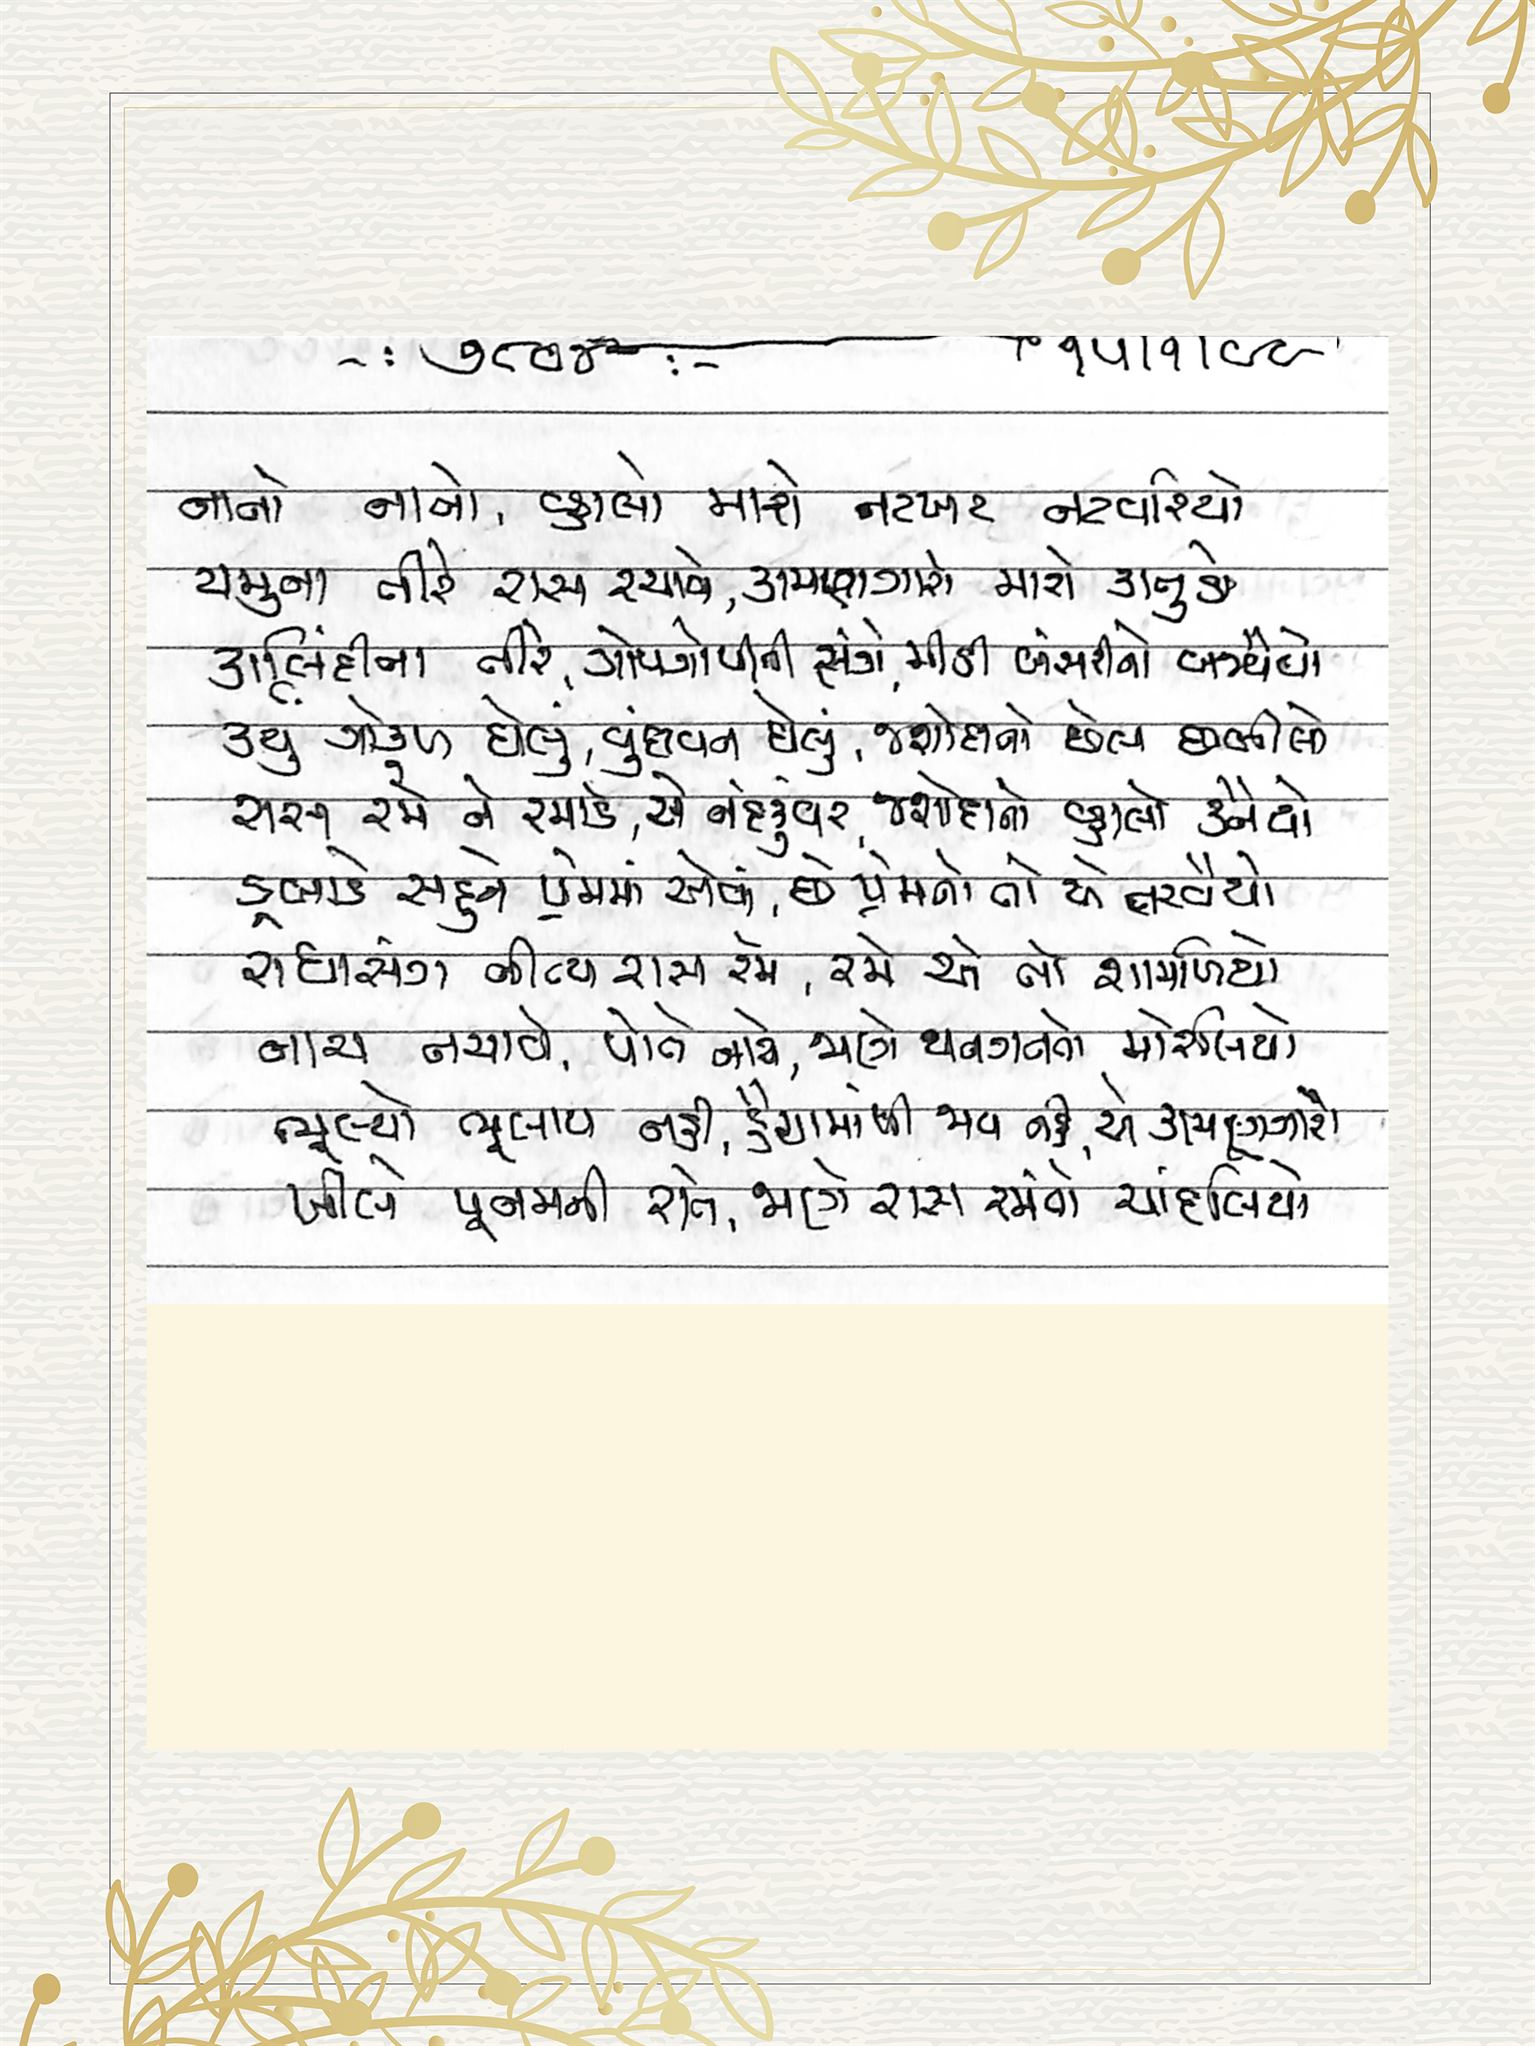 ૧૫।૧।૯૯
નાનો નાનો, વ્હાલો મારો નટખટ નટવરિયો
યમુના તીરે રાસ રચાવે, કામણગારો મારો કાનુડો
કાલિંદીના તીરે, ગોપગોપીની સંગે, મીઠી બંસરીનો બજવૈયો
કર્યું ગોકુળ ઘેલું, વૃંદાવન ઘેલું, જશોદાનો છેલ છબીલો
રાસ રમે ને રમાડે, એ નંદકુંવર, જશોદાનો વ્હાલો કનૈયો
ડૂબાડે સહુને પ્રેમમાં એવાં, છે પ્રેમનો તો એ તરવૈયો
રાધાસંગ નીત્ય રાસ રમે, રમે એ તો શામળિયો
નાચ નચાવે, પોતે નાચે, જાણે થનગનતો મોરલિયો
ભૂલ્યો ભૂલાય નહી, હૈયામાંથી જાય નહી, એ કામણગારો
ખીલે પૂનમની રાતે, જાણે રાસ રમંતો ચાંદલિયો